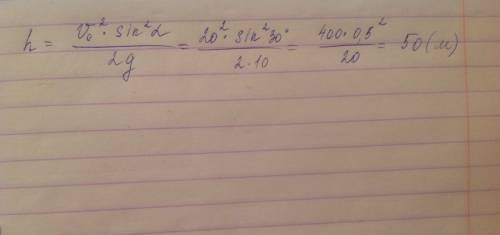 h = V₀²·sin²α / 2g = 20²·sin²30° / 2·10 = 400·0,5² / 20 = 50 (м)